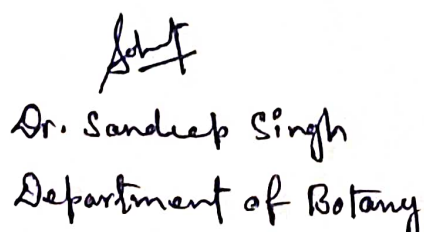 Dr. Sandeep Singh
Department of Botany